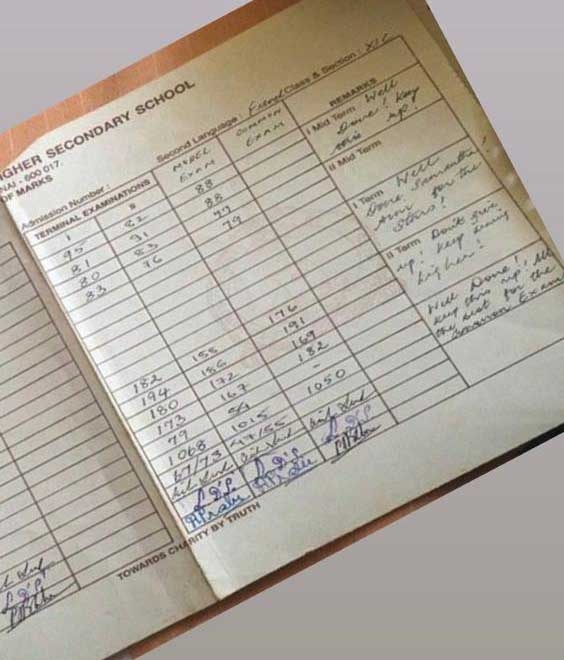 IGHER SECONDARY SCHOOL
NAI - 600 017.
OF MARKS
Second Language : French
Class & Section : XI C
Admission Number :
TERMINAL EXAMINATIONS
MODEL EXAM
COMMON EXAM
REMARKS
I II
95 82 88
81 91 88
80 83 79
83 76 79
I Mid Term Well
Done! Keep
this up!
II Mid Term
I Term Well
Done, Samantha!
Aim for the
Stars!
II Term Don't give
up! Keep aiming
higher!
Well Done!
Keep this up! All
the best for the
Common Exam
182 155 176
194 186 191
180 172 169
173 167 182
79 -
1068 1015 1050
67/73 47/55
TOWARDS CHARITY BY TRUTH